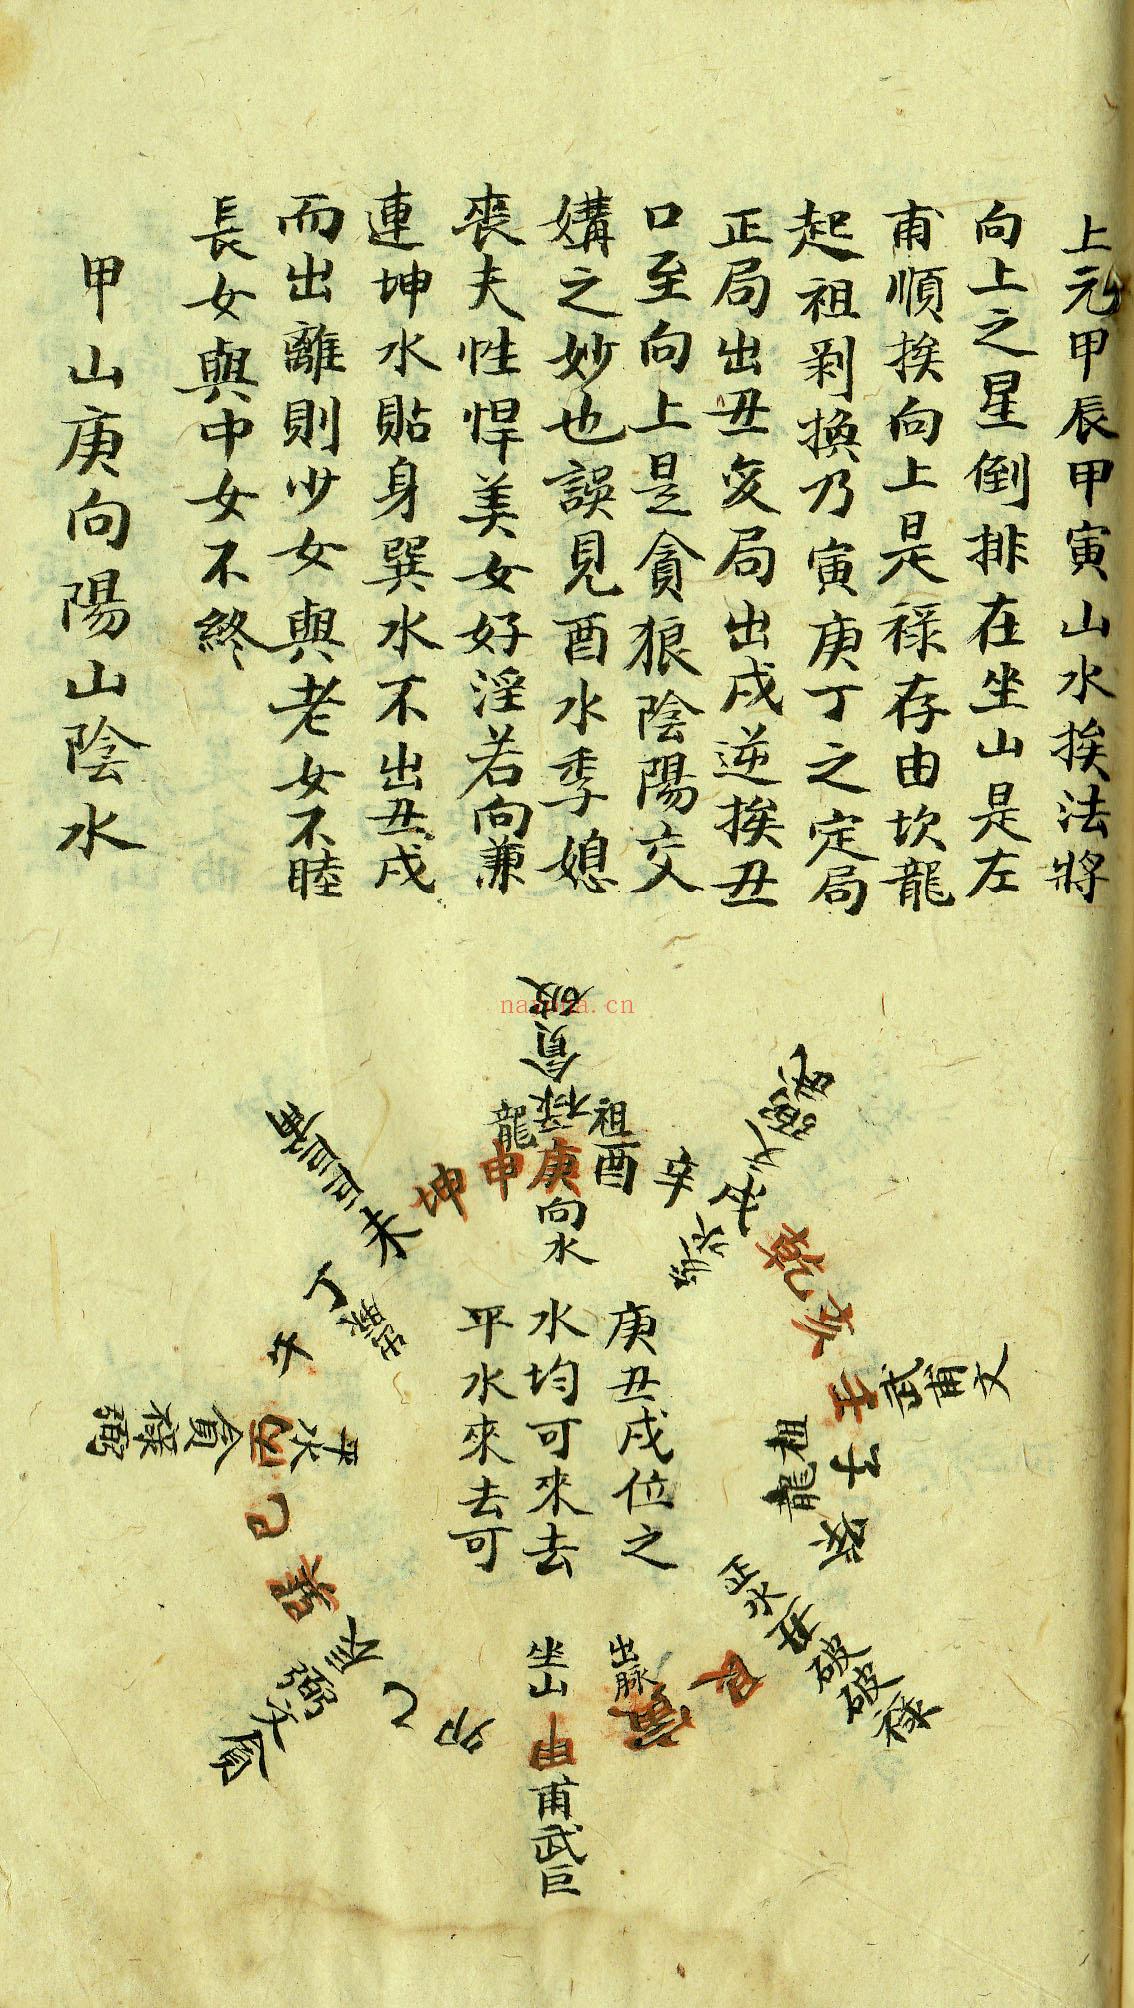 上元甲辰甲寅山水挨法將
向上之星倒排在坐山是左
甫順挨向上是祿存由坎龍
起祖剥換乃寅庚丁之定局
正局出丑变局出戍逆挨丑
口至向上是貪狼陰陽交
媾之妙也誤見酉水季媳
喪夫性悍美女好淫若向兼
連坤水貼身巽水不出丑戍
而出離則少女與老女不睦
長女與中女不終
甲山庚向陽山陰水
破
貪
祿
龍
祖
坤
申
庚
酉
辛
乾
亥
壬
子
癸
丑
寅
甲
卯
乙
巳
午
丁
未
向水
庚丑戍位之
水均可來去
平水來去可
甫巨
武甫文
祖龍
平水
貪祿弼
破破祿
弼文貪
出脉
坐山
甫武巨
nanhua.cn